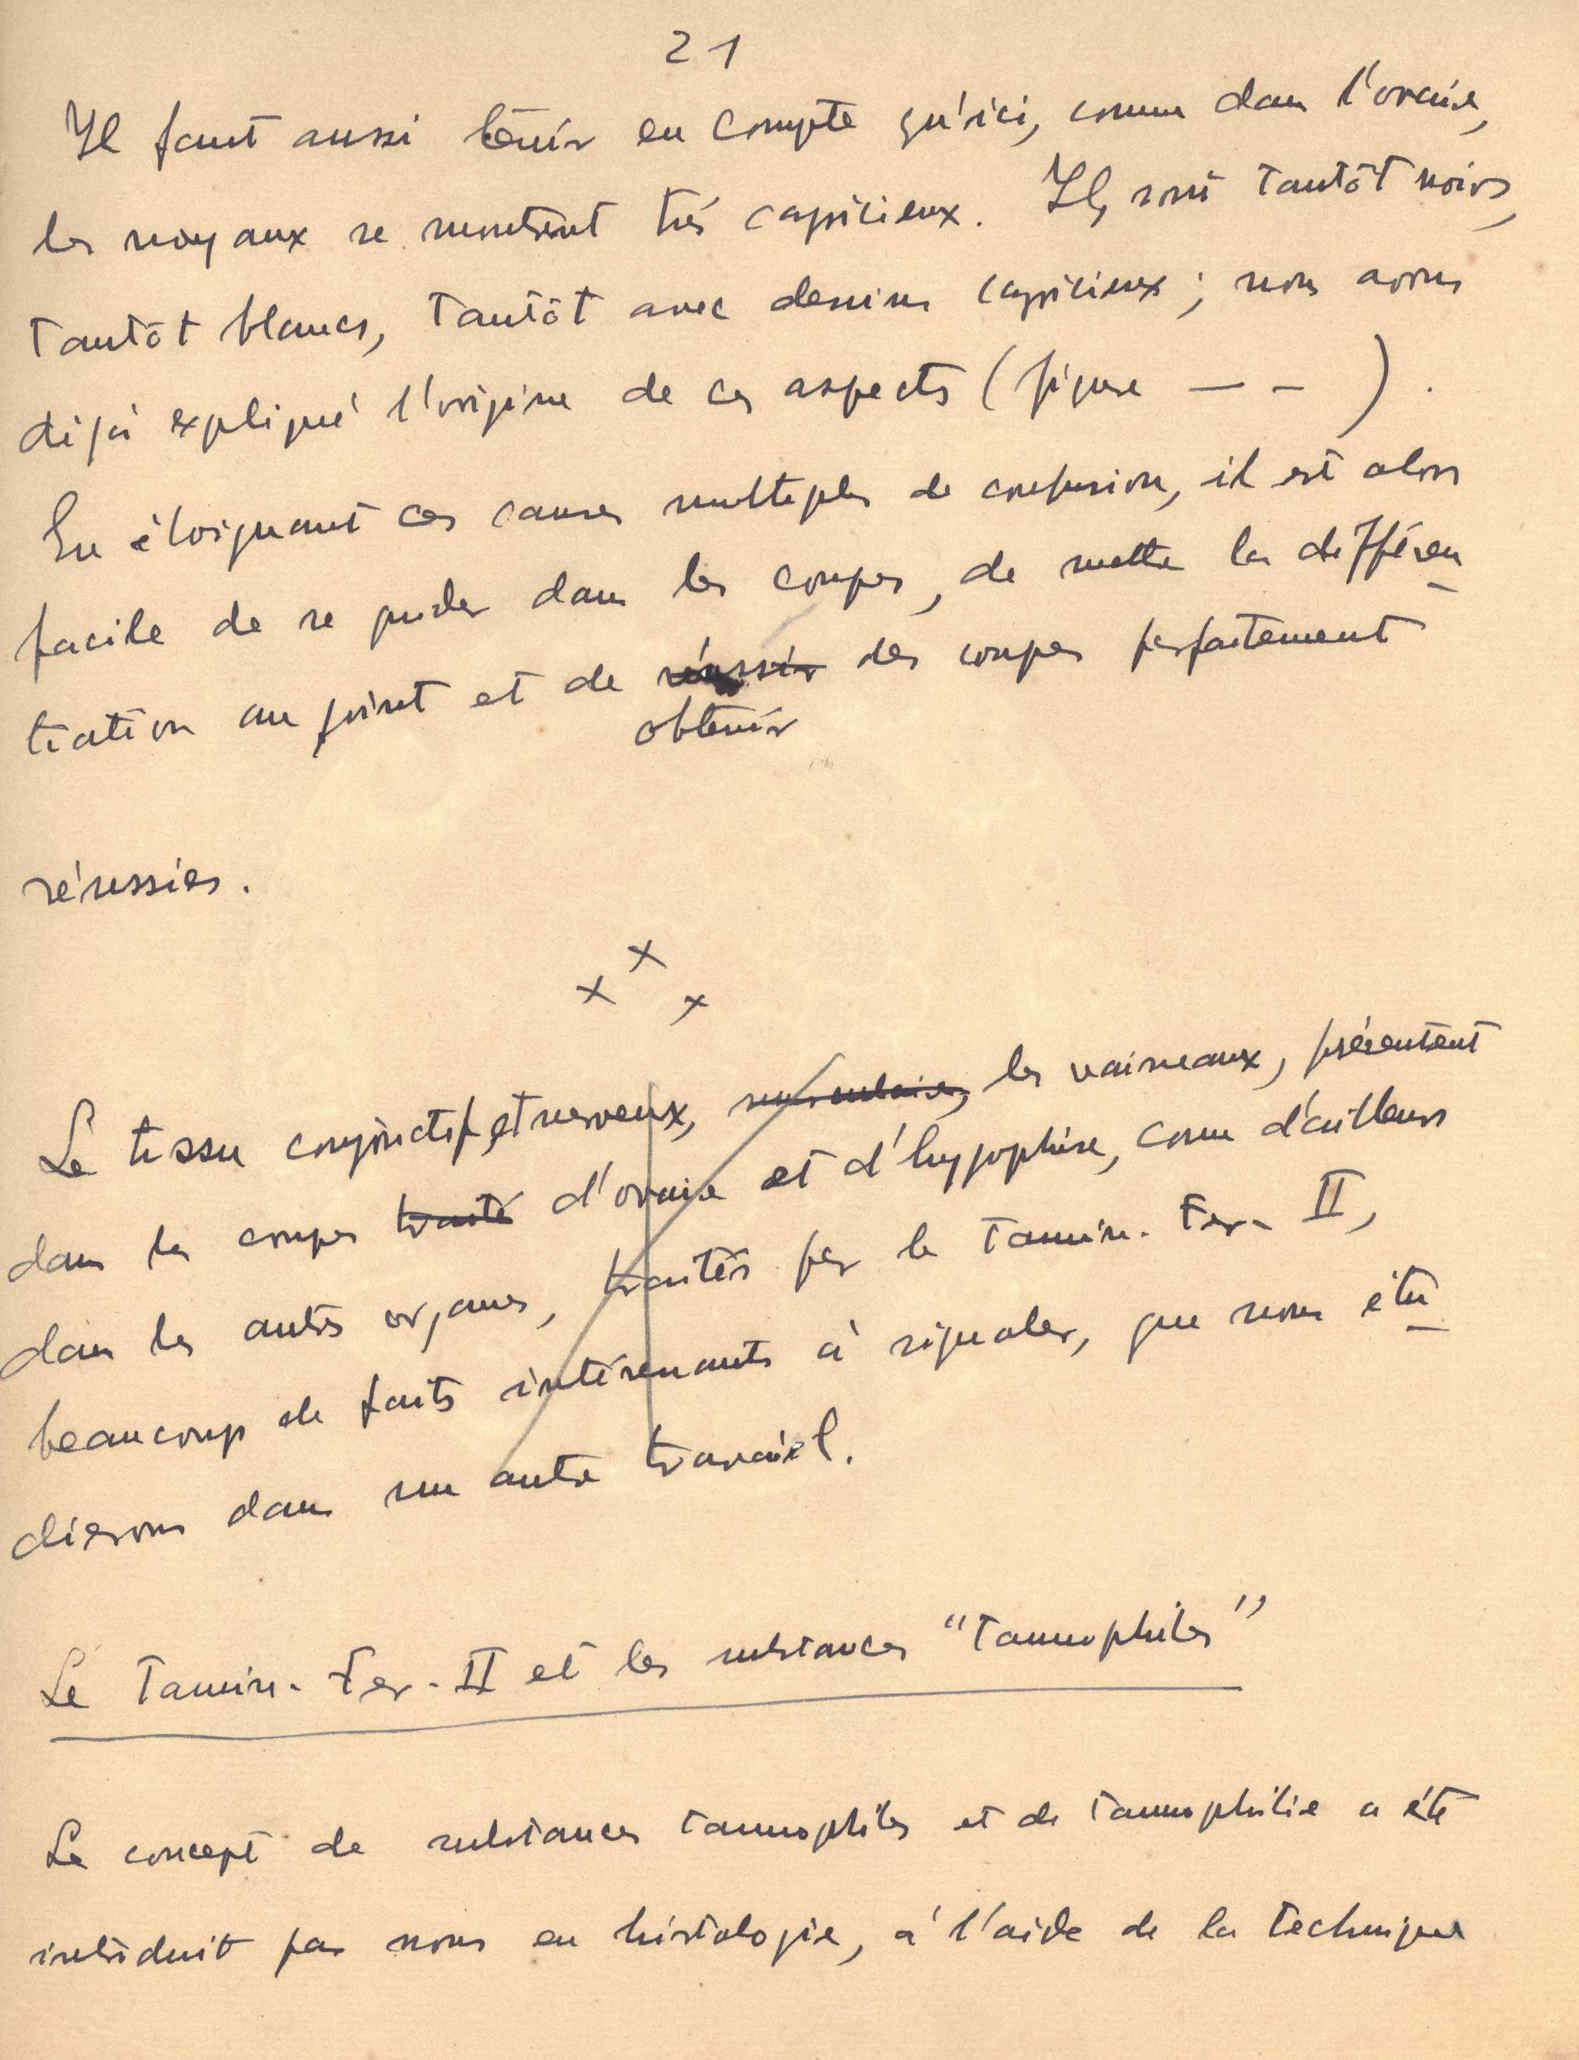 21
Il faut aussi tenir en compte qu'ici, comme dans l'ovaire,
les noyaux se montrent très capricieux. Ils sont tantôt noirs,
tantôt blancs, tantôt avec dessins capricieux ; nous avons
déjà expliqué l'origine de ces aspects (figure — – ).
En éloignant ces causes multiples de confusion, il est alors
facile de se guider dans les coupes, de mettre la différen
tiation au point et de réussir des coupes parfaitement
obtenir
réussies.
x x x
Le tissu conjonctif, et nerveux, musculaire, les vaisseaux, présentent
dans les coupes traité d'ovaire et d'hypophise, comme d'ailleurs
dans les autres organes, traités par le Tannin-Fer-II,
beaucoup de faits intéressants à signaler, que nous étu
dierons dans un autre travail.
Le Tannin-Fer-II et les substances "tannophiles"
Le concept de substances tannophiles et de tannophilie a été
introduit par nous en histologie, à l'aide de la technique